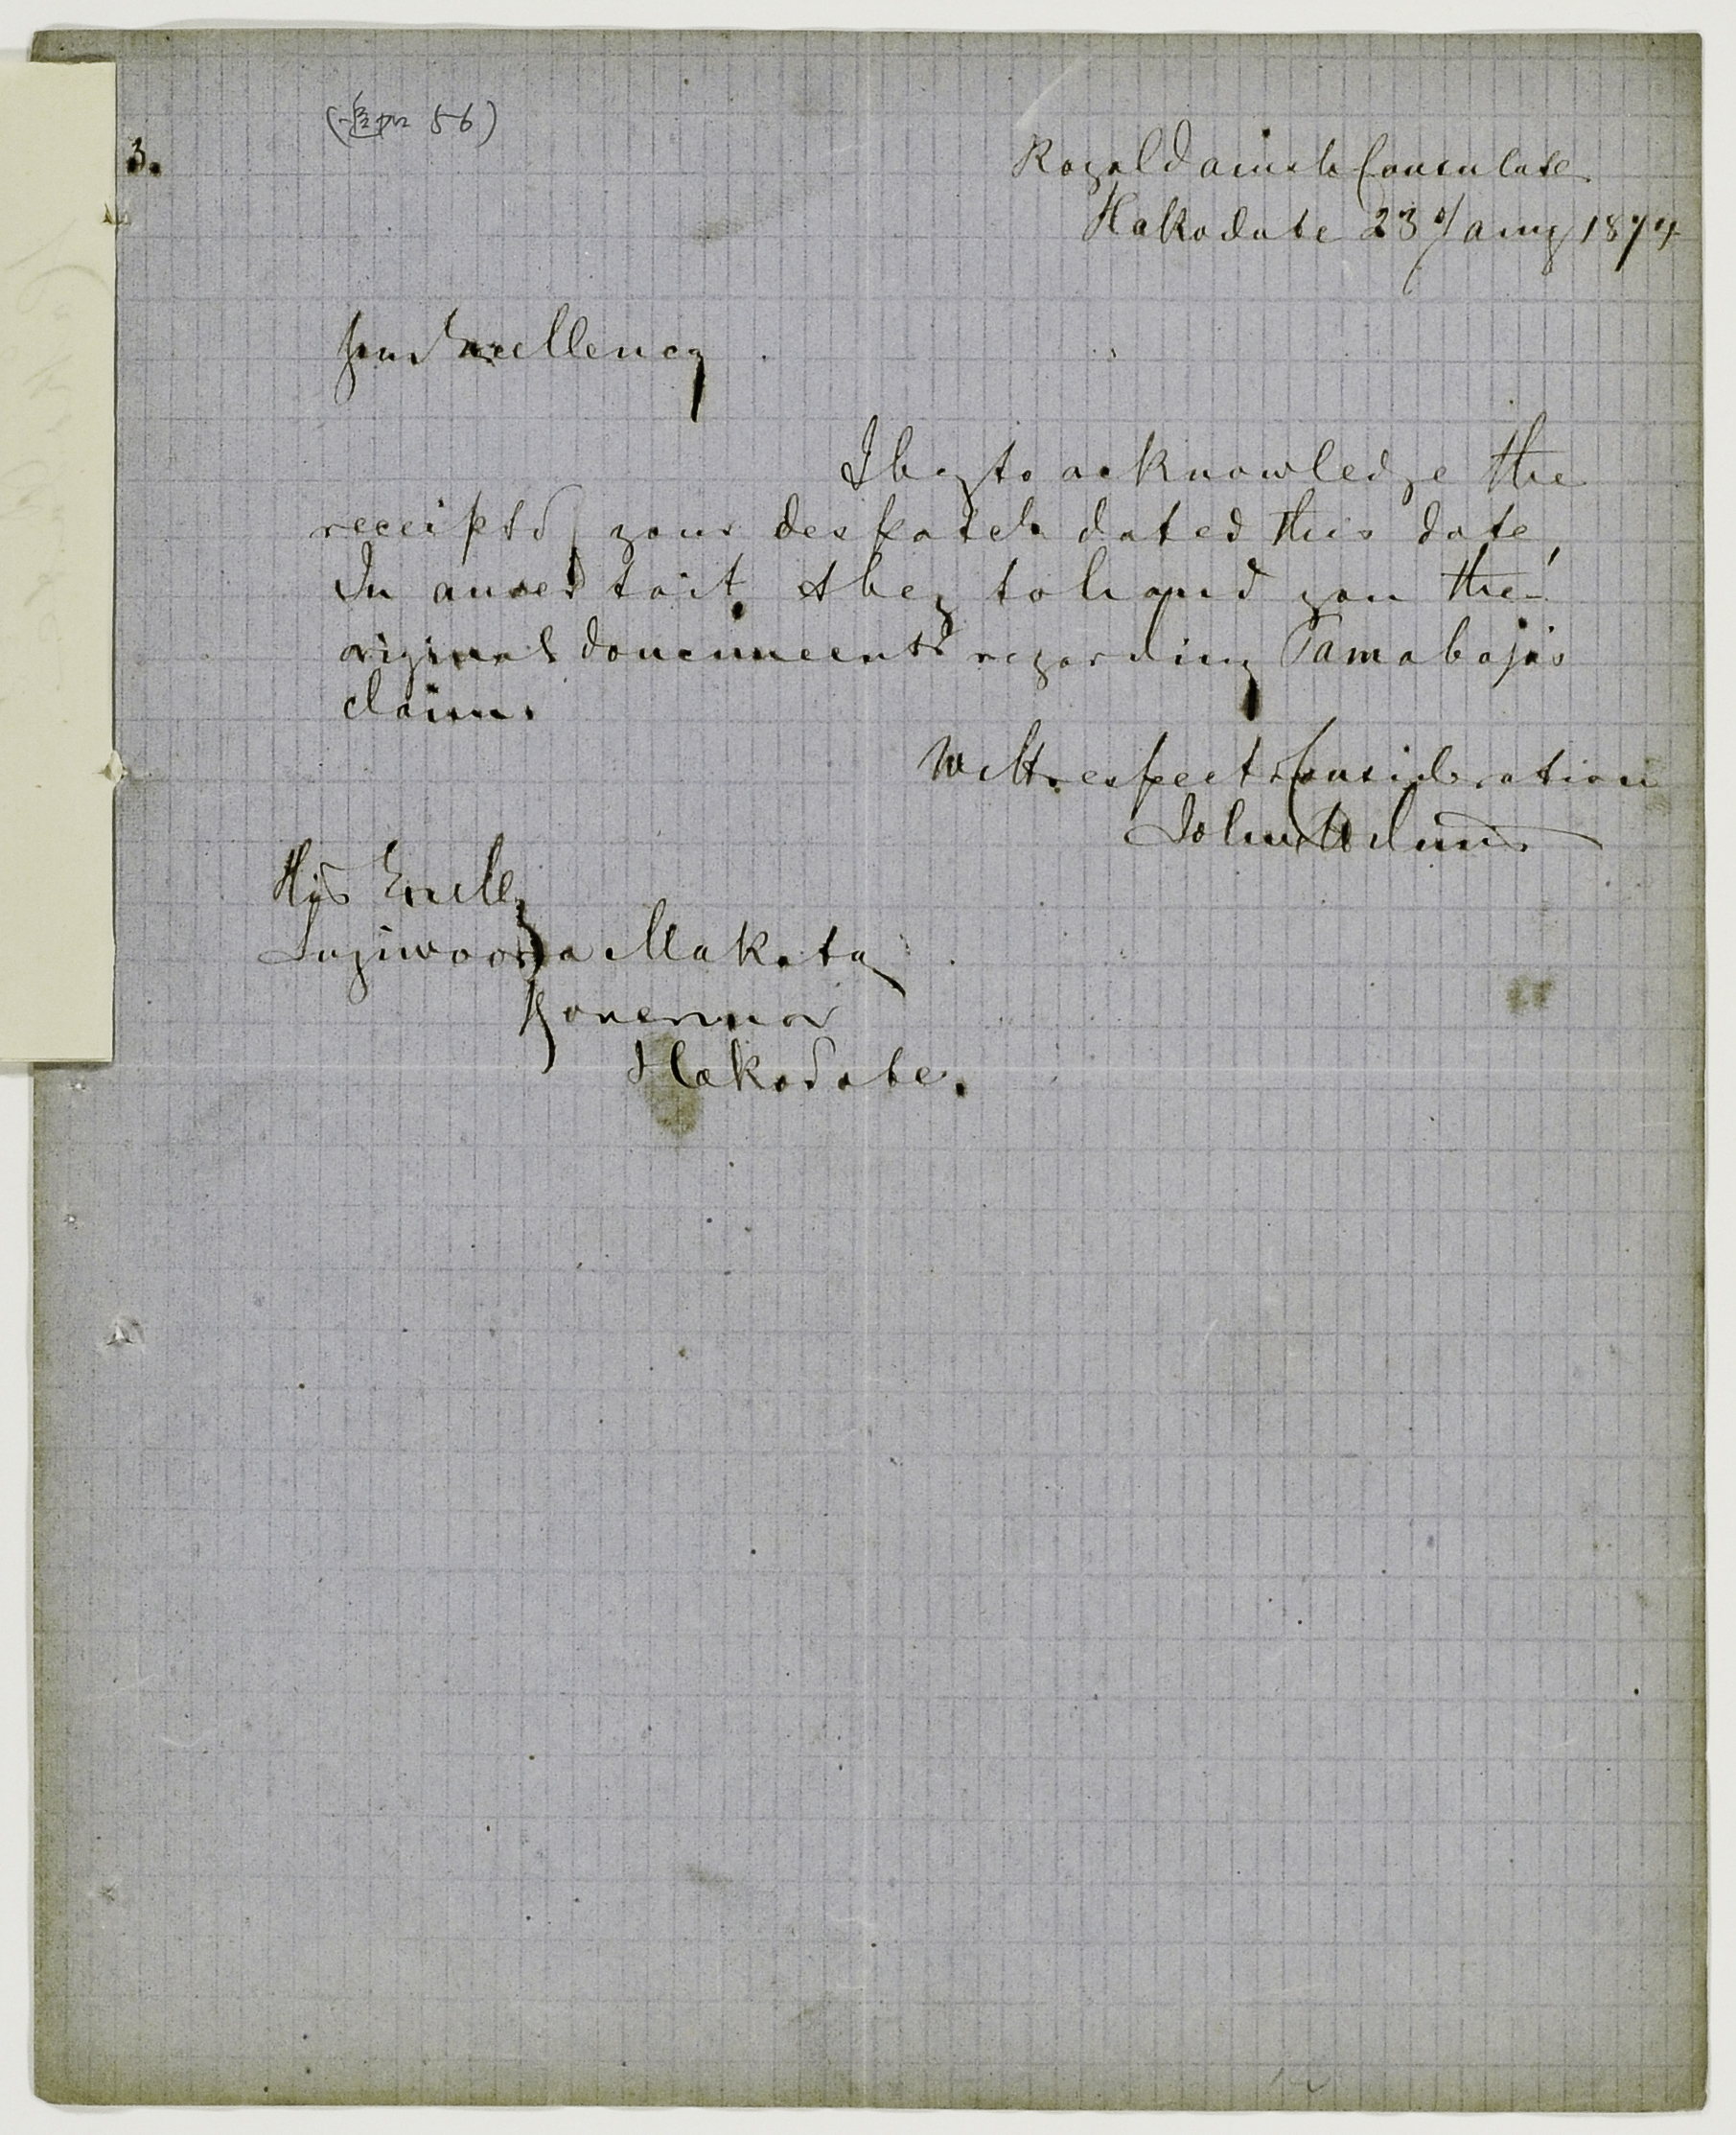 (追加 56)
3.
Royal danish Consulate
Hakodate 23 d/ aug 1874
Your Excellency
I beg to acknowledge the
receipt of your despatch dated this date,
In answer to it, I beg to hand you the
original doucumeents regarding Tamabaja's
claim.
With respect & Consideration
John Will
His Excelly
Sugiwoora Makoto
Gouvernor
Hakodate.